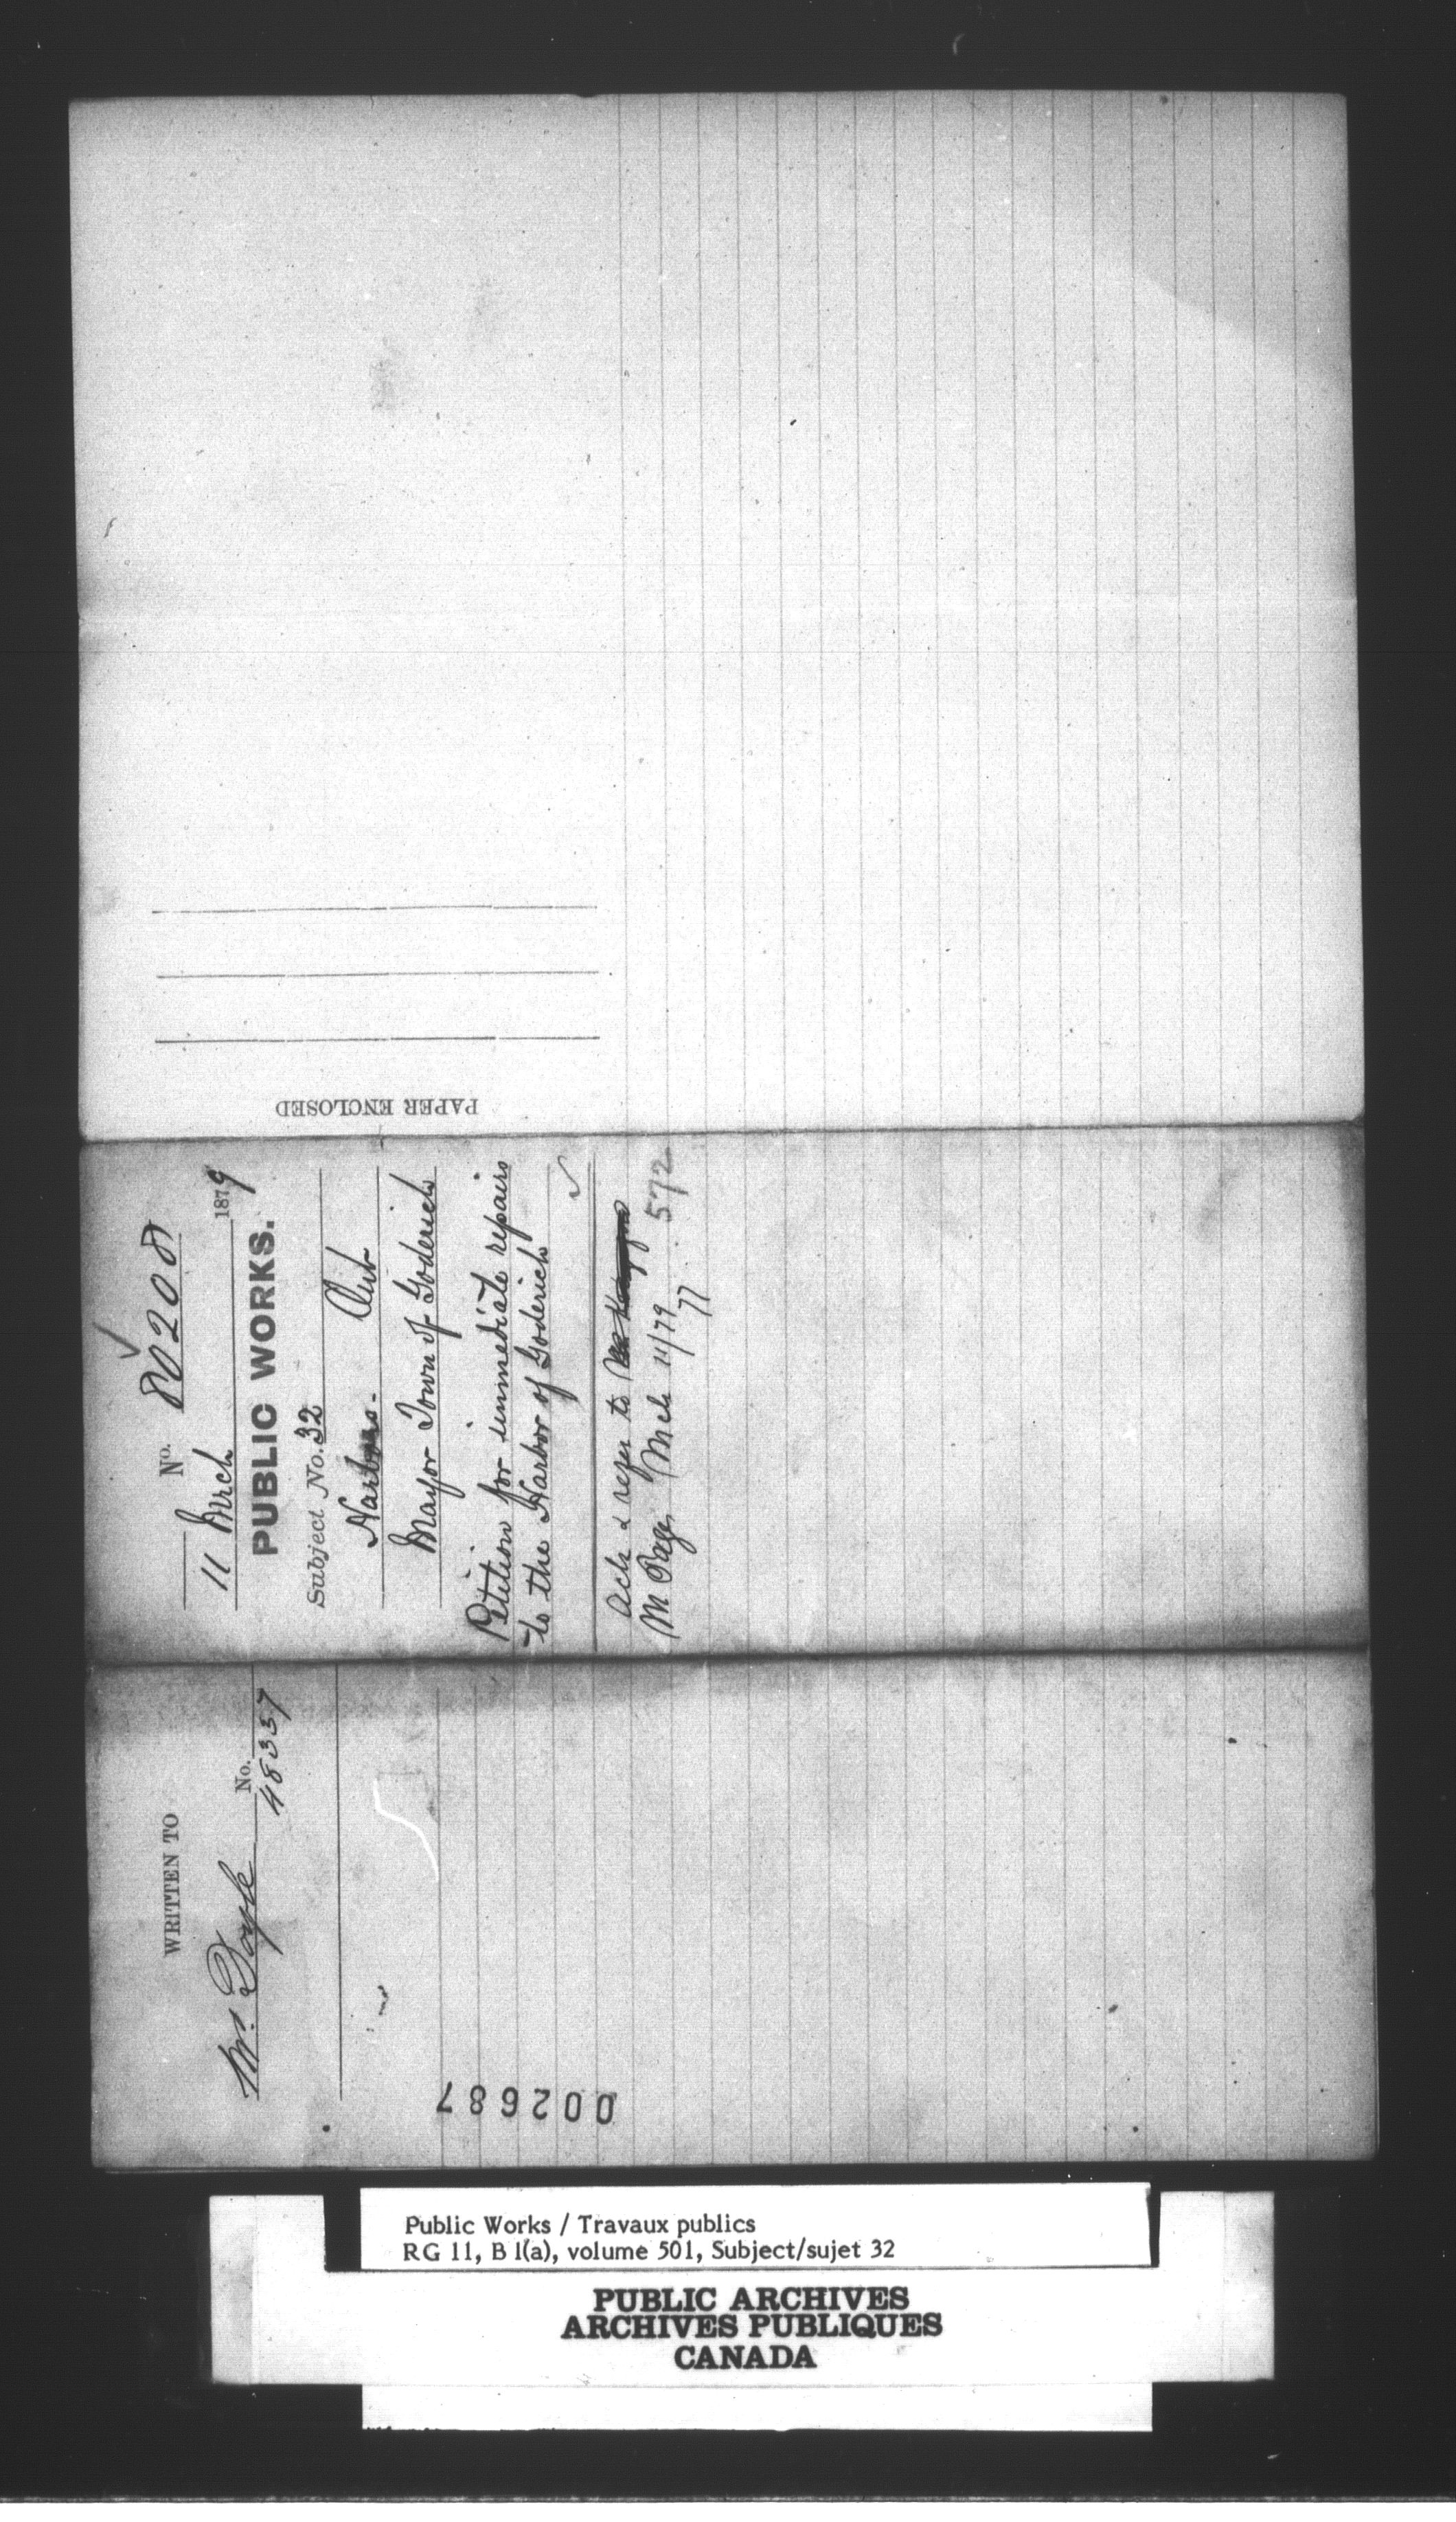 PAPER ENCLOSED
No. 80208
11 Mrch 1879
PUBLIC WORKS.
Subject No. 32
Harbors. Ont
Mayor Town of Goderich
Petition for immediate repairs
to the Harbor of Goderich
Ack & refer to
M Page Mch 11/79 572
77
WRITTEN TO
Mr. Doyle No. 48337
002687
Public Works / Travaux publics
RG 11, B 1(a), volume 501, Subject/sujet 32
PUBLIC ARCHIVES
ARCHIVES PUBLIQUES
CANADA